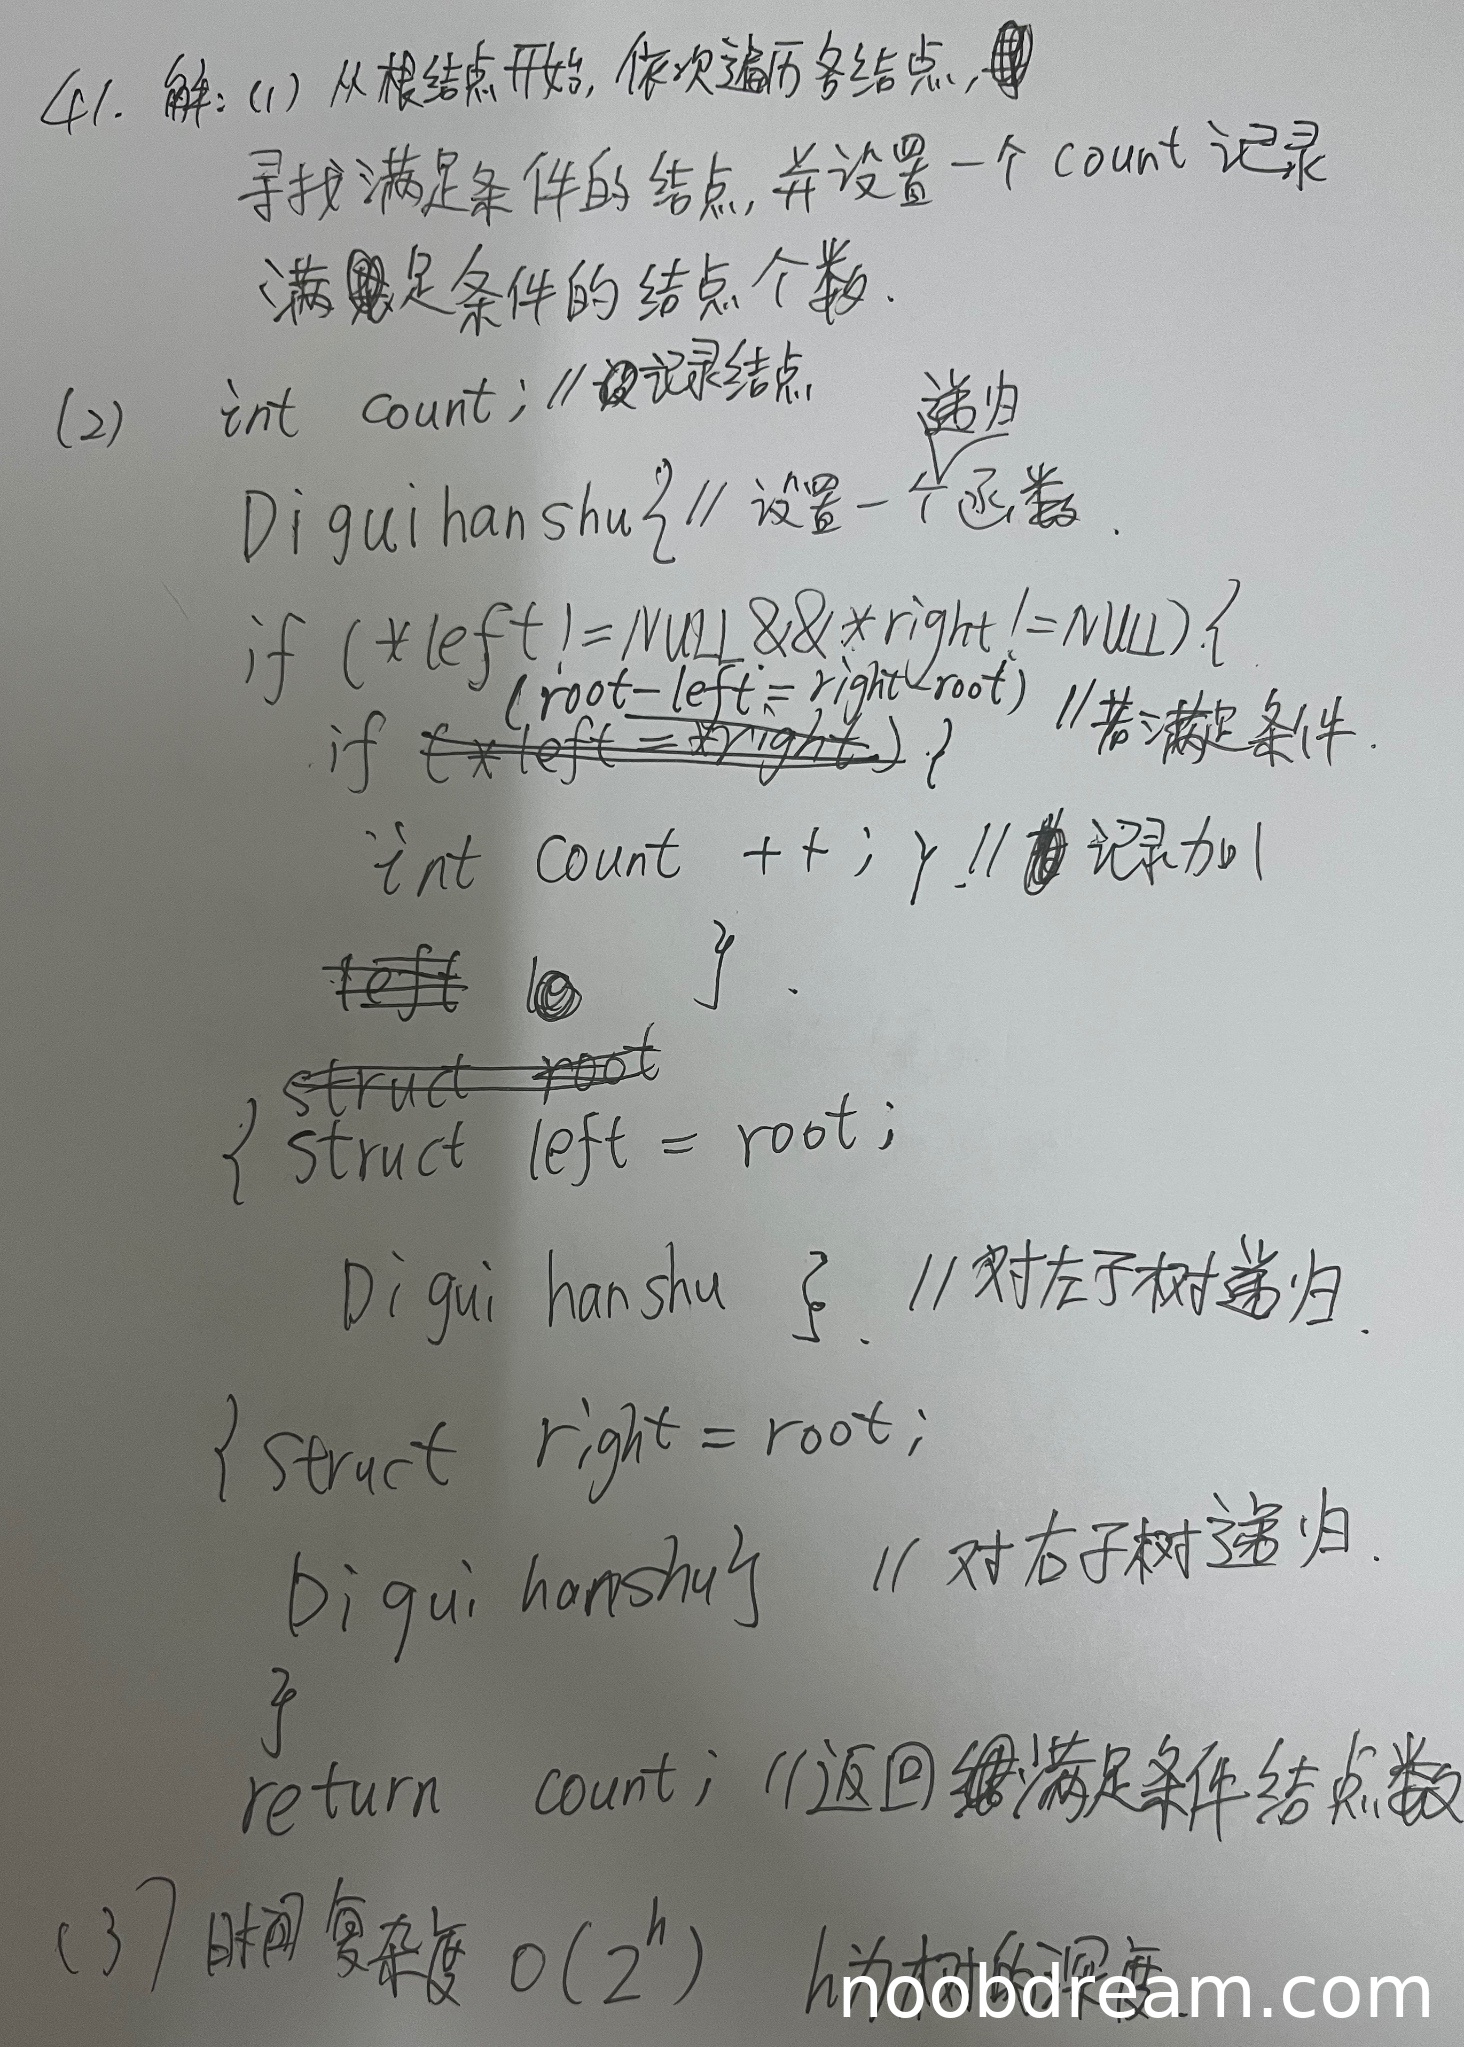 41. 解:(1) 从根结点开始,依次遍历各结点,
寻找满足条件的结点,并设置一个 count 记录
满足条件的结点个数.
(2) int count; //记录结点
递归
Diguihanshu{ // 设置一个函数.
if (*left!=NULL&&*right!=NULL){
(root-left=right-root) //若满足条件.
if (*left=*right) {
int count ++; } // 记录加1
left }
struct root
{ struct left = root;
Digui hanshu }. // 对左子树递归.
{ struct right = root;
Digui hanshu} // 对右子树递归.
}
return count; //返回满足条件结点数
(3) 时间复杂度 O(2^h) h为树的深度.
noobdream.com